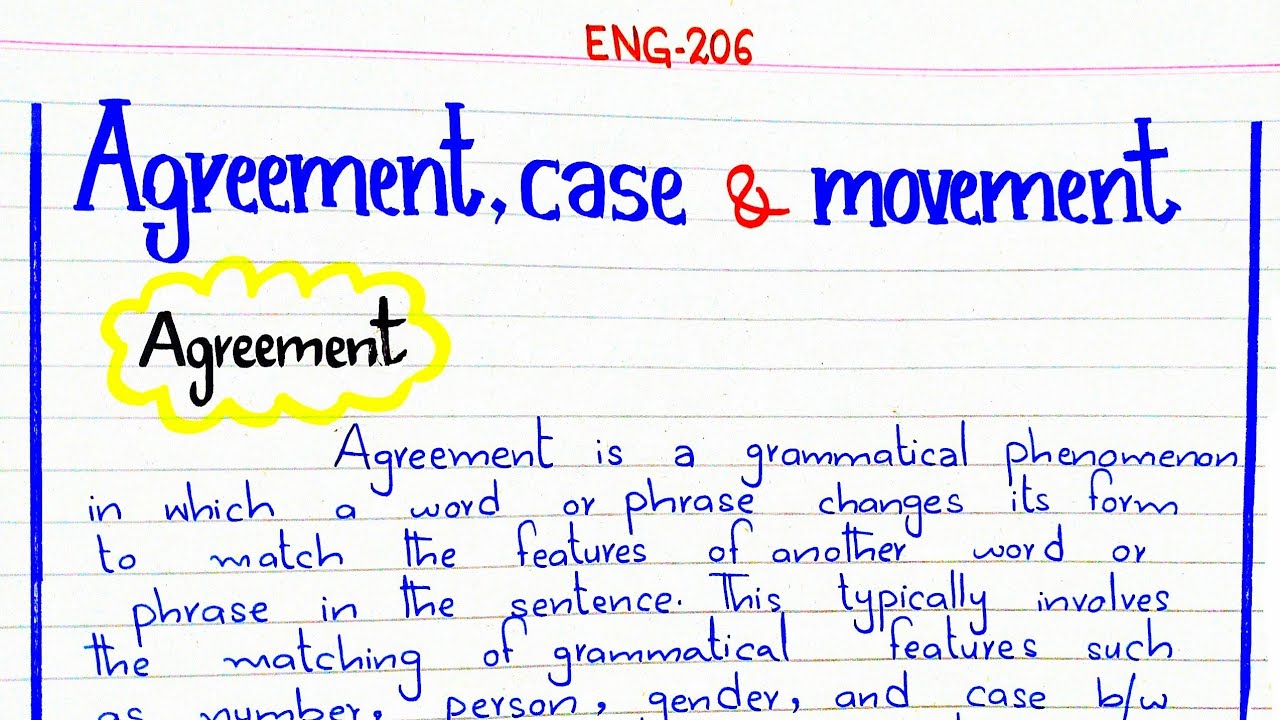 ENG-206
Agreement, case & movement
Agreement
Agreement is a grammatical phenomenon
in which a word or phrase changes its form
to match the features of another word or
phrase in the sentence. This typically involves
the matching of grammatical features such
as number, person, gender, and case b/w